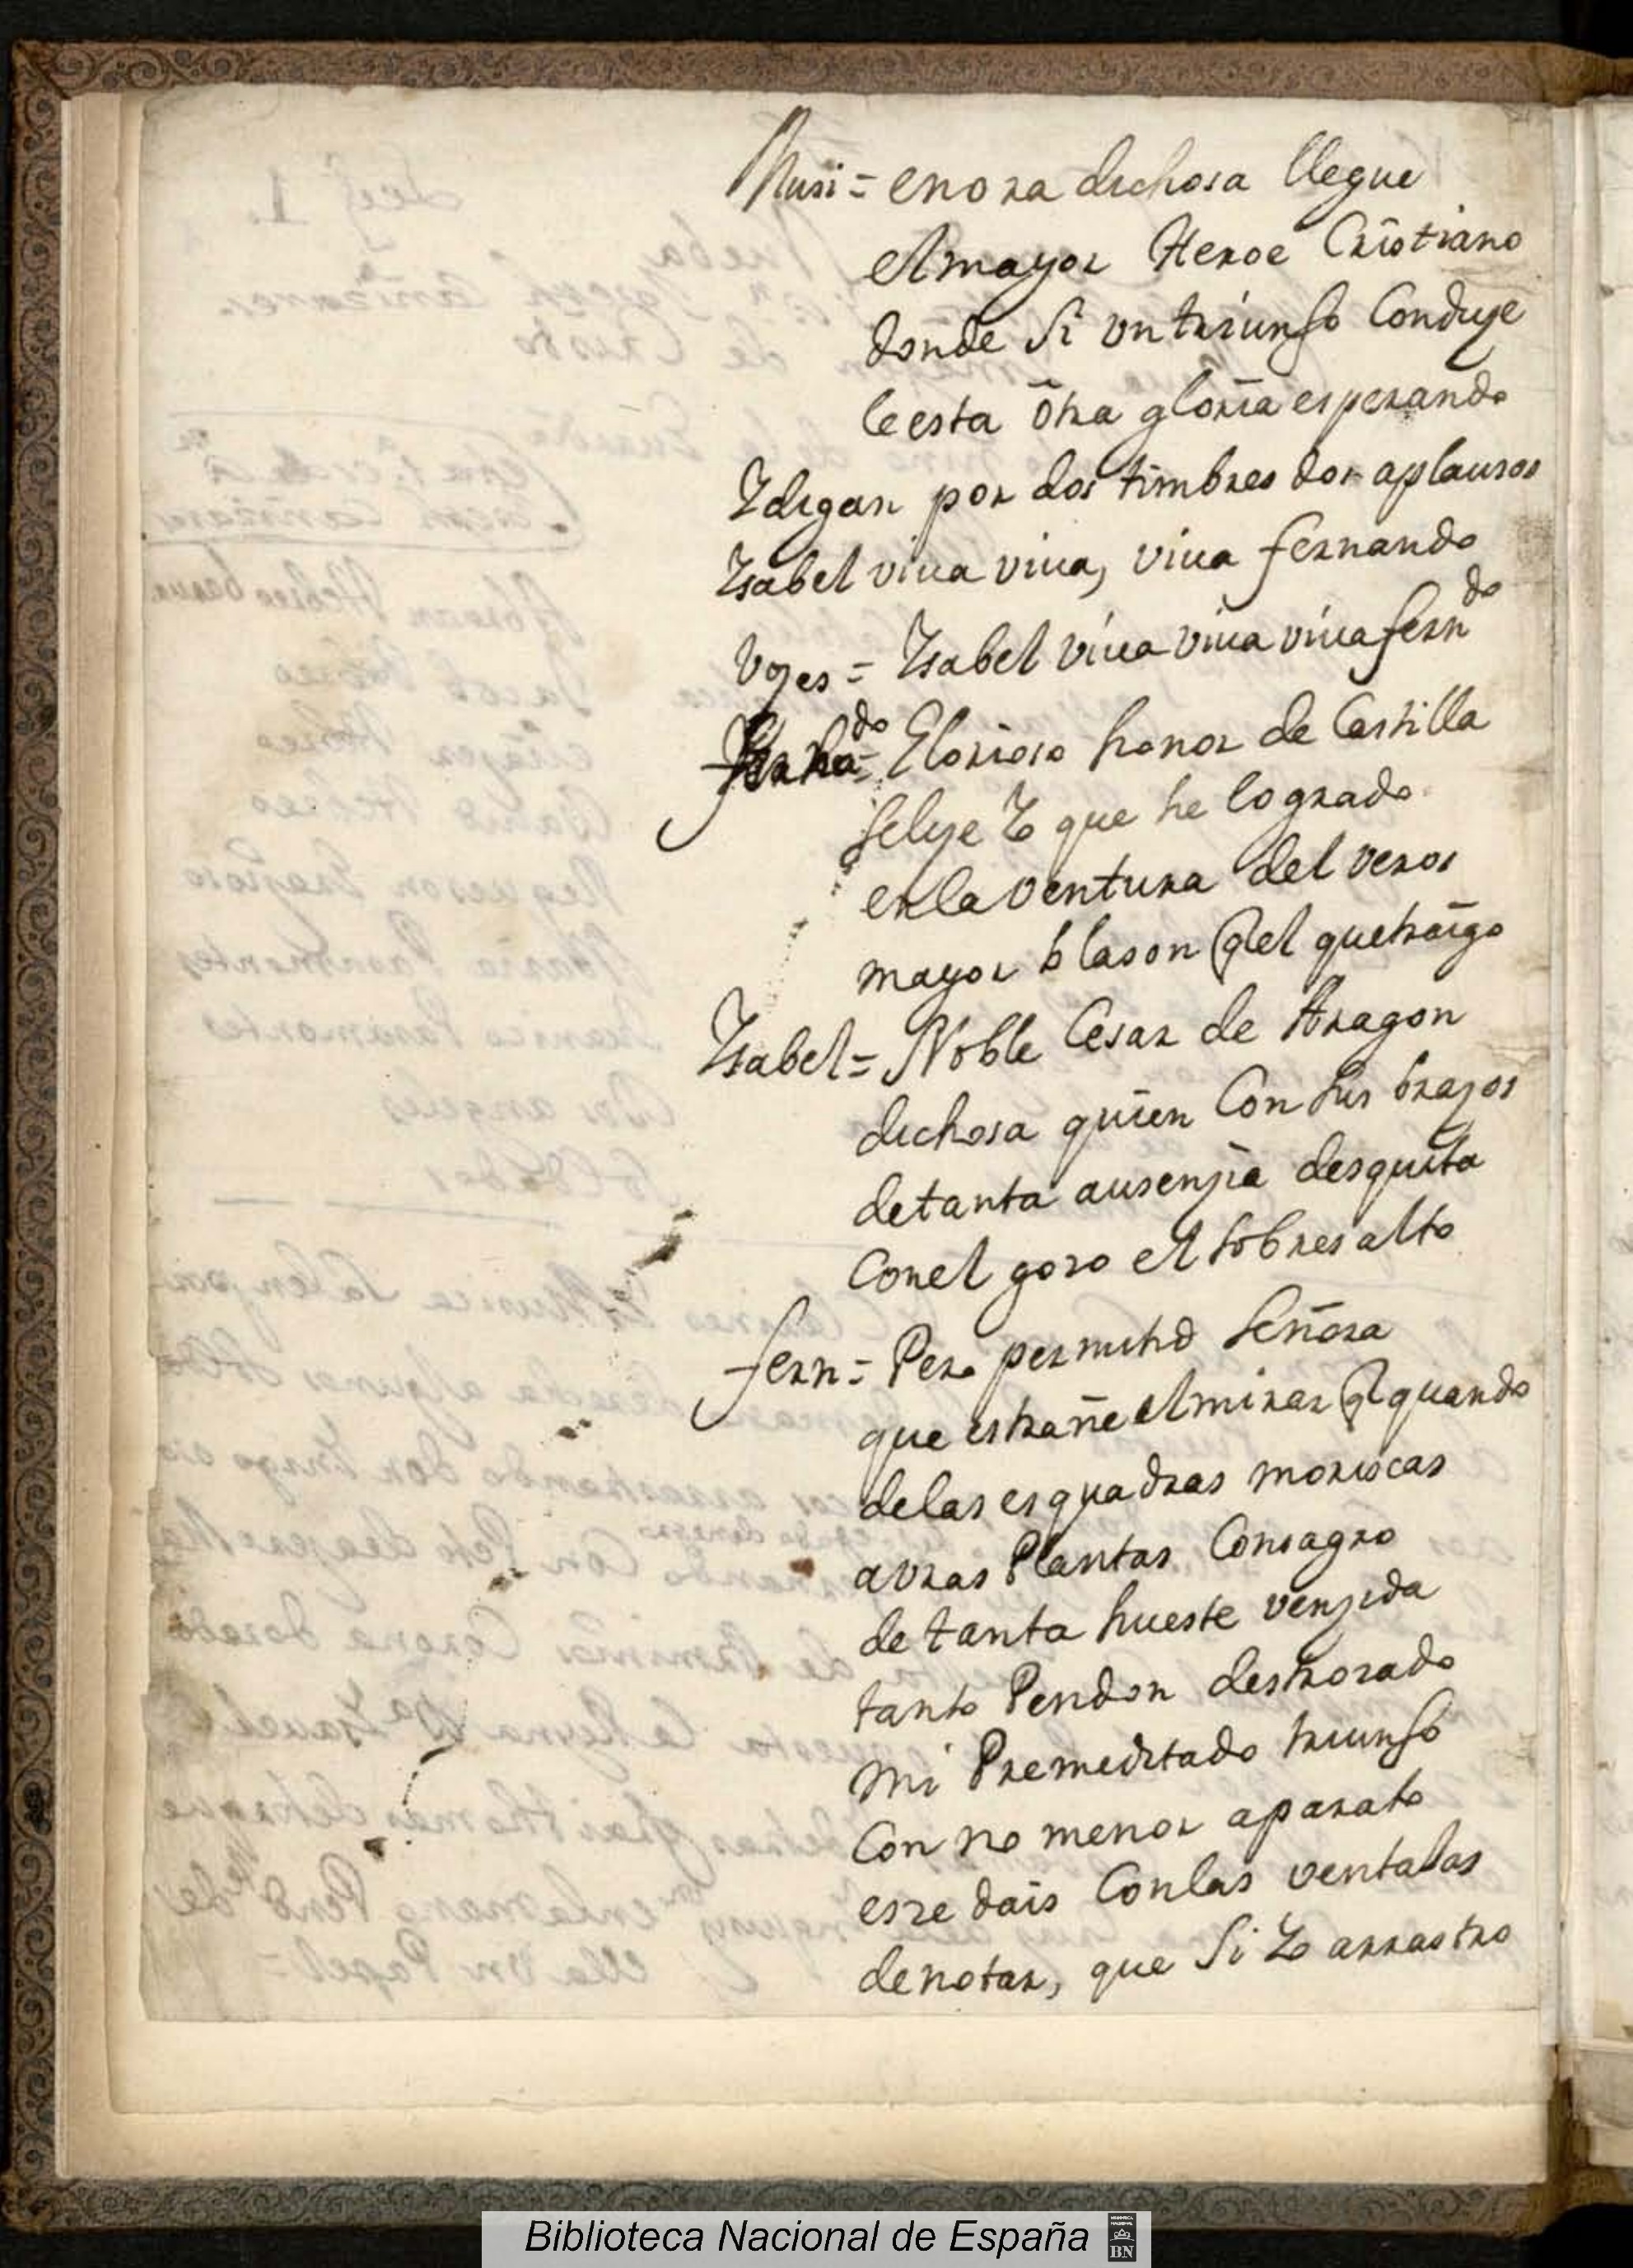 Musi = enora dichosa llegue
el mayor Heroe Cristiano
donde si un triunfo Conduze
le esta otra gloria esperando
Y digan por dos timbres dos aplausos
Ysabel viua viua, viua fernando
Vozes = Ysabel viua viua viua ferndo
fernado = Glorioso honor de Castilla
felize Yo que he logrado
en la ventura del veros
mayor blason q el que traigo
Ysabel = Noble Cesar de Aragon
dichosa quien Con sus brazos
de tanta ausenzia desquita
Con el gozo el sobresalto
fern = Pero permitid Señora
que estrañe el mirar q quando
de las esquadras moriscas
a vras Plantas Consagro
de tanta hueste venzida
tanto Pendon destrozado
mi Premeditado triunfo
Con no menor aparato
ezedais Con las ventajas
de notar, que Si Yo arrastro
Biblioteca Nacional de España
BN